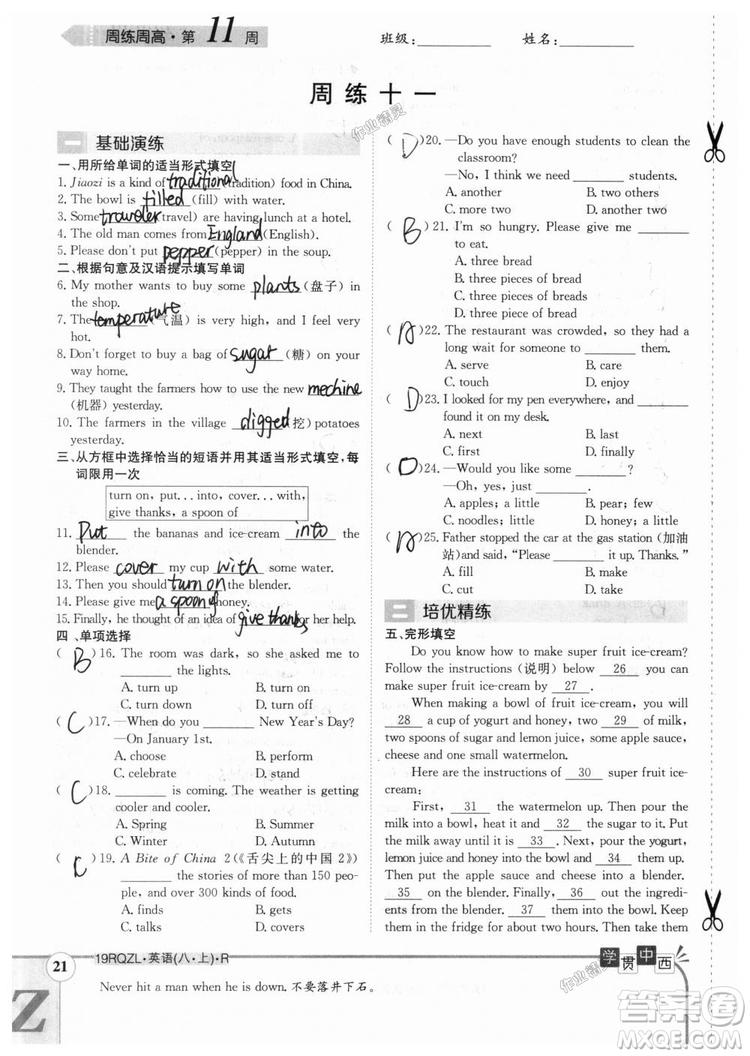 周练周高·第11周 班级：________ 姓名：________
周 练 十 一
一 基础演练
一、用所给单词的适当形式填空
1. Jiaozi is a kind of traditional (tradition) food in China.
2. The bowl is filled (fill) with water.
3. Some traveler (travel) are having lunch at a hotel.
4. The old man comes from England (English).
5. Please don't put pepper (pepper) in the soup.
二、根据句意及汉语提示填写单词
6. My mother wants to buy some plants (盘子) in
the shop.
7. The temperature (气温) is very high, and I feel very
hot.
8. Don't forget to buy a bag of sugat (糖) on your
way home.
9. They taught the farmers how to use the new mechine
(机器) yesterday.
10. The farmers in the village digged (挖) potatoes
yesterday.
三、从方框中选择恰当的短语并用其适当形式填空，每
词限用一次
turn on, put…into, cover…with,
give thanks, a spoon of
11. Put the bananas and ice-cream into the
blender.
12. Please cover my cup with
13. Then you should turn on the blender.
14. Please give me a spoon of honey.
15. Finally, he thought of an idea of give thanks for her help.
四、单项选择
( B )16. The room was dark, so she asked me to
________ the lights.
A. turn up B. turn on
C. turn down D. turn off
( C )17. —When do you ________ New Year's Day?
—On January 1st.
A. choose B. perform
C. celebrate D. stand
( C )18. ________ is coming. The weather is getting
cooler and cooler.
A. Spring B. Summer
C. Winter D. Autumn
( C )19. A Bite of China 2(《舌尖上的中国2》)
________ the stories of more than 150 peo-
ple, and over 300 kinds of food.
A. finds B. gets
C. talks D. covers
( D )20. —Do you have enough students to clean the
classroom?
—No, I think we need ________ students.
A. another B. two others
C. more two D. another two
( B )21. I'm so hungry. Please give me ________
to eat.
A. three bread
B. three pieces of bread
C. three pieces of breads
D. three piece of bread
( A )22. The restaurant was crowded, so they had a
long wait for someone to ________ them.
A. serve B. care
C. touch D. enjoy
( D )23. I looked for my pen everywhere, and ________
found it on my desk.
A. next B. last
C. first D. finally
( D )24. —Would you like some ________?
—Oh, yes, just ________.
A. apples; a little B. pear; few
C. noodles; little D. honey; a little
( A )25. Father stopped the car at the gas station (加油
站) and said, “Please ________ it up. Thanks.”
A. fill B. make
C. cut D. take
二 培优精练
五、完形填空
Do you know how to make super fruit ice-cream?
Follow the instructions (说明) below 26 you can
make super fruit ice-cream by 27.
When making a bowl of fruit ice-cream, you will
28 a cup of yogurt and honey, two 29 of milk,
two spoons of sugar and lemon juice, some apple sauce
and a small watermelon.
Here are the instructions of 30 super fruit ice-
cream:
First, 31 the watermelon up. Then pour the
milk into a bowl, heat it and 32 the sugar to it. Put
the milk away until it is 33. Next, pour the yogurt,
lemon juice and honey into the bowl and 34 them up.
35 on the blender. Then put the apple sauce and
36 pieces of watermelon into it. Take out the ingredi-
ents (成分) after they are mixed up, and then put them
into the fridge. About two hours later, you can enjoy
21 19RQZL·英语(八·上)·R 学贯中西
Never hit a man when he is down. 不要落井下石。
Z
作业精灵
作业精灵
答案圈
MXQE.COM